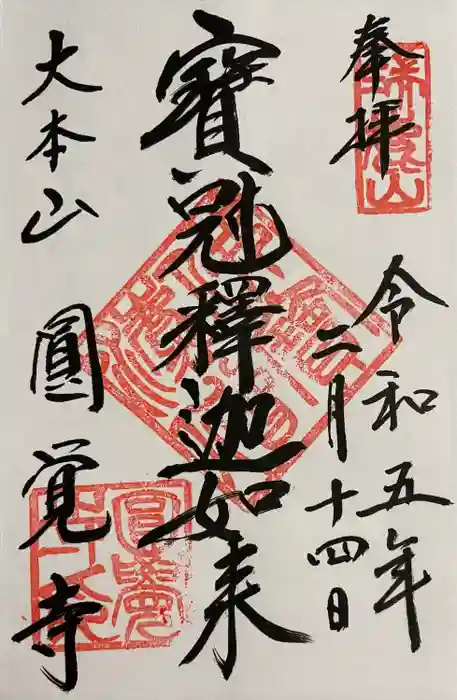 奉拝
令和五年
二月十四日
寶冠釋迦如来
大本山
圓覚寺
瑞鹿山